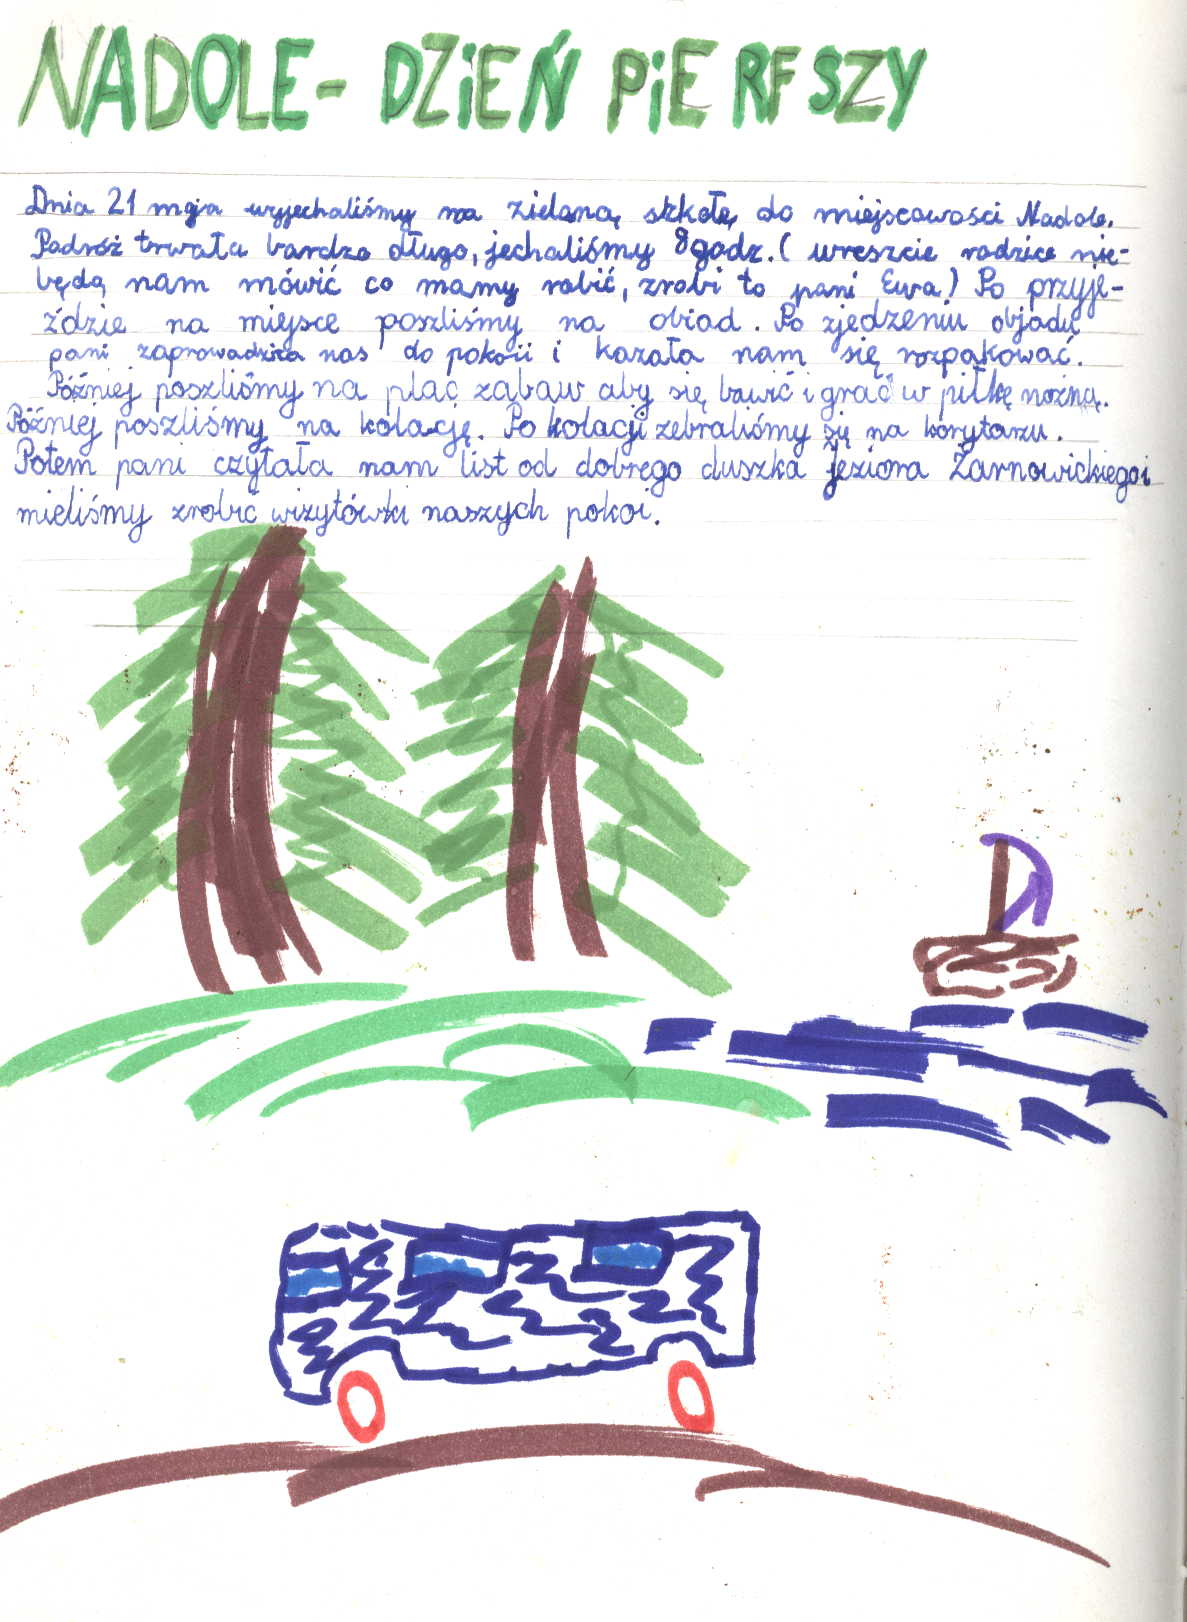 NADOLE - DZiEŃ PiERFSZY
Dnia 21 maja wyjechaliśmy na zieloną szkołę do miejscowości Nadole.
Padróż trwała bardzo długo, jechaliśmy 8godz. ( wreszcie rodzice nie-
będą nam mówić co mamy robić, zrobi to pani Ewa.) Po przyje-
ździe na miejsce poszliśmy na obiad. Po zjedzeniu objadu
pani zaprowadziła nas do pokoii i kazała nam się rozpakować.
Później poszliśmy na plac zabaw aby się bawić i grać w piłkę nożną.
Później poszliśmy na kolację. Po kolacji zebraliśmy się na korytarzu.
Potem pani czytała nam list od dobrego duszka jeziora Żarnowickiego i
mieliśmy zrobić wizytówki naszych pokoi.